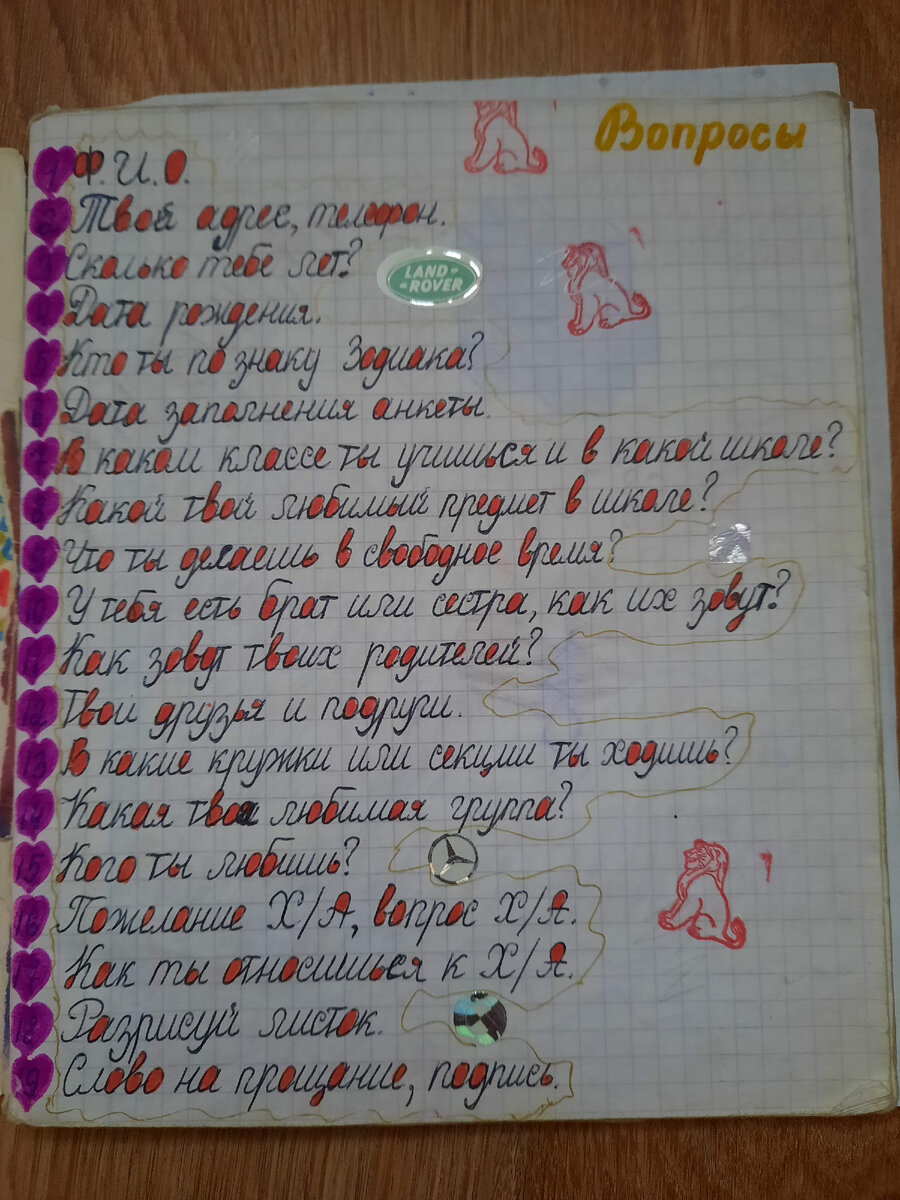 Вопросы
1 Ф.И.О.
2 Твой адрес, телефон.
3 Сколько тебе лет?
LAND-
-ROVER
4 Дата рождения.
5 Кто ты по знаку Зодиака?
6 Дата заполнения анкеты.
7 В каком классе ты учишься и в какой школе?
8 Какой твой любимый предмет в школе?
9 Что ты делаешь в свободное время?
10 У тебя есть брат или сестра, как их зовут?
11 Как зовут твоих родителей?
12 Твои друзья и подруги.
13 В какие кружки или секции ты ходишь?
14 Какая твоя любимая группа?
15 Кого ты любишь?
16 Пожелание Х/А, вопрос Х/А.
17 Как ты относишься к Х/А.
18 Разрисуй листок.
19 Слово на прощание, подпись.